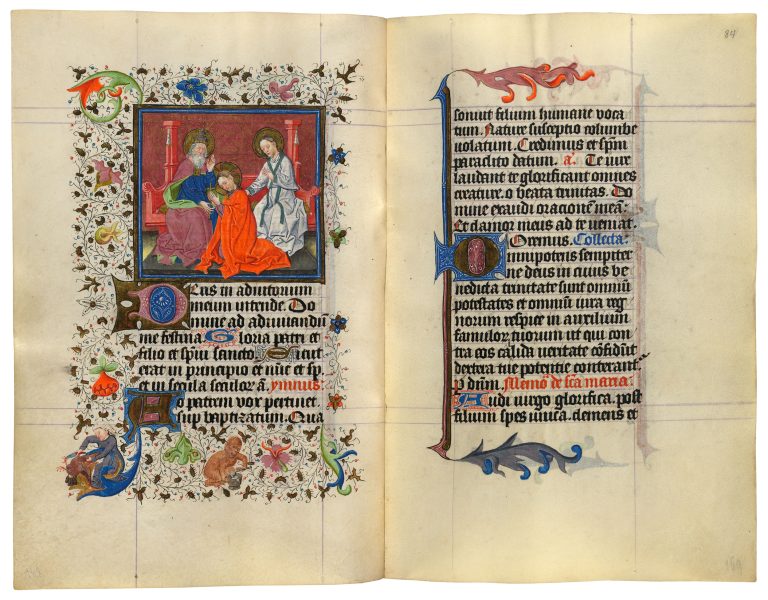 Deus in adiutorium
meum intende. Do
mine ad adiuuandū
me festina Gloria patri et
filio et spūi sancto. Sicut
erat in principio et nūc et sp̄
et in secula seculor ā. ymnus.
Ao patrem vox pertinet.
Sup baptizatum. Qua
84
sonuit filium humane voca
tum. Nature susceptio columbe
uolatum. Credimus et spm̄
paraclito datum. a. Te iure
laudant te glorificant omnes
creature. o beata trinitas. Do
mine exaudi oracionē meā.
Et clamor meus ad te veniat.
Oremus. Collecta.
Omnipotens sempiter
ne deus in cuius be
nedicta trinitate sunt omniū
potestates et omniū iura reg
norum respice in auxilium
famulor tuorum ut qui contra
cos calida
dextera tue potentie conterant.
P dūm. Memo de scā maria.
Audi uirgo glorifica. post
filium spes unica. clemens et
169